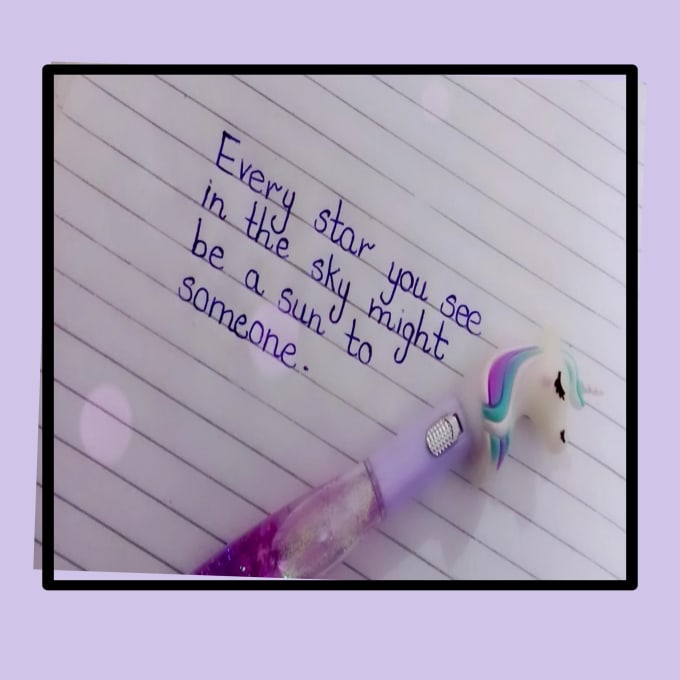 Every star you see
in the sky might
be a sun to
someone.